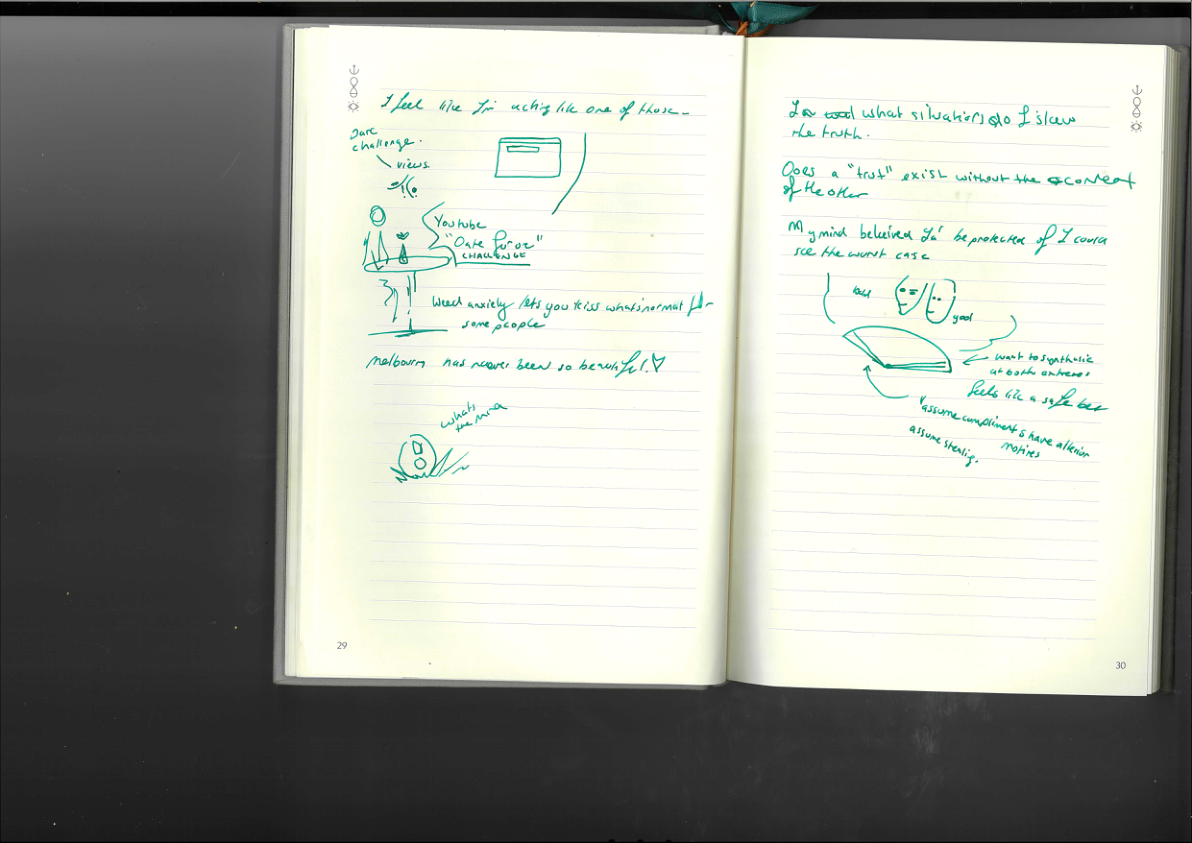 I feel like I'm acting like one of those -
Dare
challenge.
views
Youtube
"Date for 02"
CHALLENGE
Weed anxiety lets you kiss whats normal for
some people
melbourn has never been so beautiful.
whats
the mind
29
what situations do I slow
the truth.
Does a "trut" exist without the context
of the other
My mind beleived I'd be protected if I could
see the worst case
bad
good
want to synthasise
at both extremes
feels like a safe bet
assume compliments have alterior
motives
assume stealing.
30